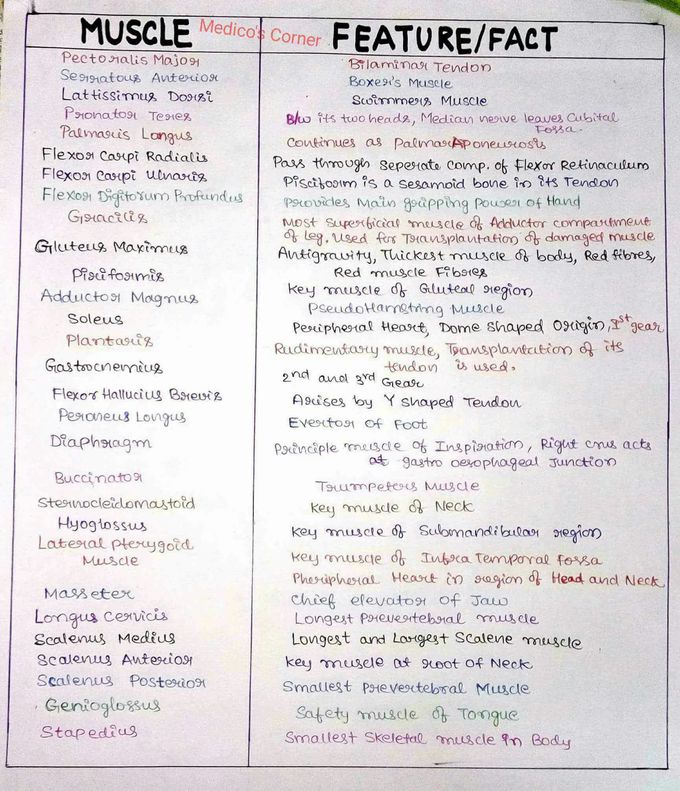 MUSCLE Medico's Corner FEATURE/FACT
Pectoralis Major Bilaminar Tendon
Serratous Anterior Boxer's Muscle
Lattissimus Dorsi Swimmers Muscle
Pronator Teres B/w its two heads, Median nerve leaves Cubital Fossa.
Palmaris Longus Continues as Palmar Aponeurosis
Flexor Carpi Radialis Pass through Seperate Comp. of Flexor Retinaculum
Flexor Carpi Ulnaris Pisciform is a sesamoid bone in its Tendon
Flexor Digitorum Profundus Provides Main gripping Power of Hand
Gracilis Most Superficial muscle of Adductor compartment
of leg. Used for Transplantation of damaged muscle
Gluteus Maximus Antigravity, Thickest muscle of body, Red fibres,
Red muscle Fibres
Pisciformis Key muscle of Gluteal region
Adductor Magnus Pseudo Hamstring Muscle
Soleus Peripheral Heart, Dome Shaped Origin, 1st gear
Plantaris Rudimentary muscle, Transplantation of its
tendon is used.
Gastrocnemius 2nd and 3rd Gear
Flexor Hallucius Brevis Arises by Y Shaped Tendon
Peroneus Longus Evertor of Foot
Diaphragm Principle muscle of Inspiration, Right crus acts
at gastro oesophageal Junction
Buccinator Trumpeters Muscle
Sternocleidomastoid Key muscle of Neck
Hyoglossus Key muscle of Submandibular region
Lateral Pterygoid Muscle Key muscle of Infra Temporal Fossa
Pheripheral Heart in region of Head and Neck
Masseter Chief elevator of Jaw
Longus Cervicis Longest Prevertebral muscle
Scalenus Medius Longest and Largest Scalene muscle
Scalenus Anterior Key muscle at root of Neck
Scalenus Posterior Smallest Prevertebral Muscle
Genioglossus Safety muscle of Tongue
Stapedius Smallest Skeletal muscle in Body